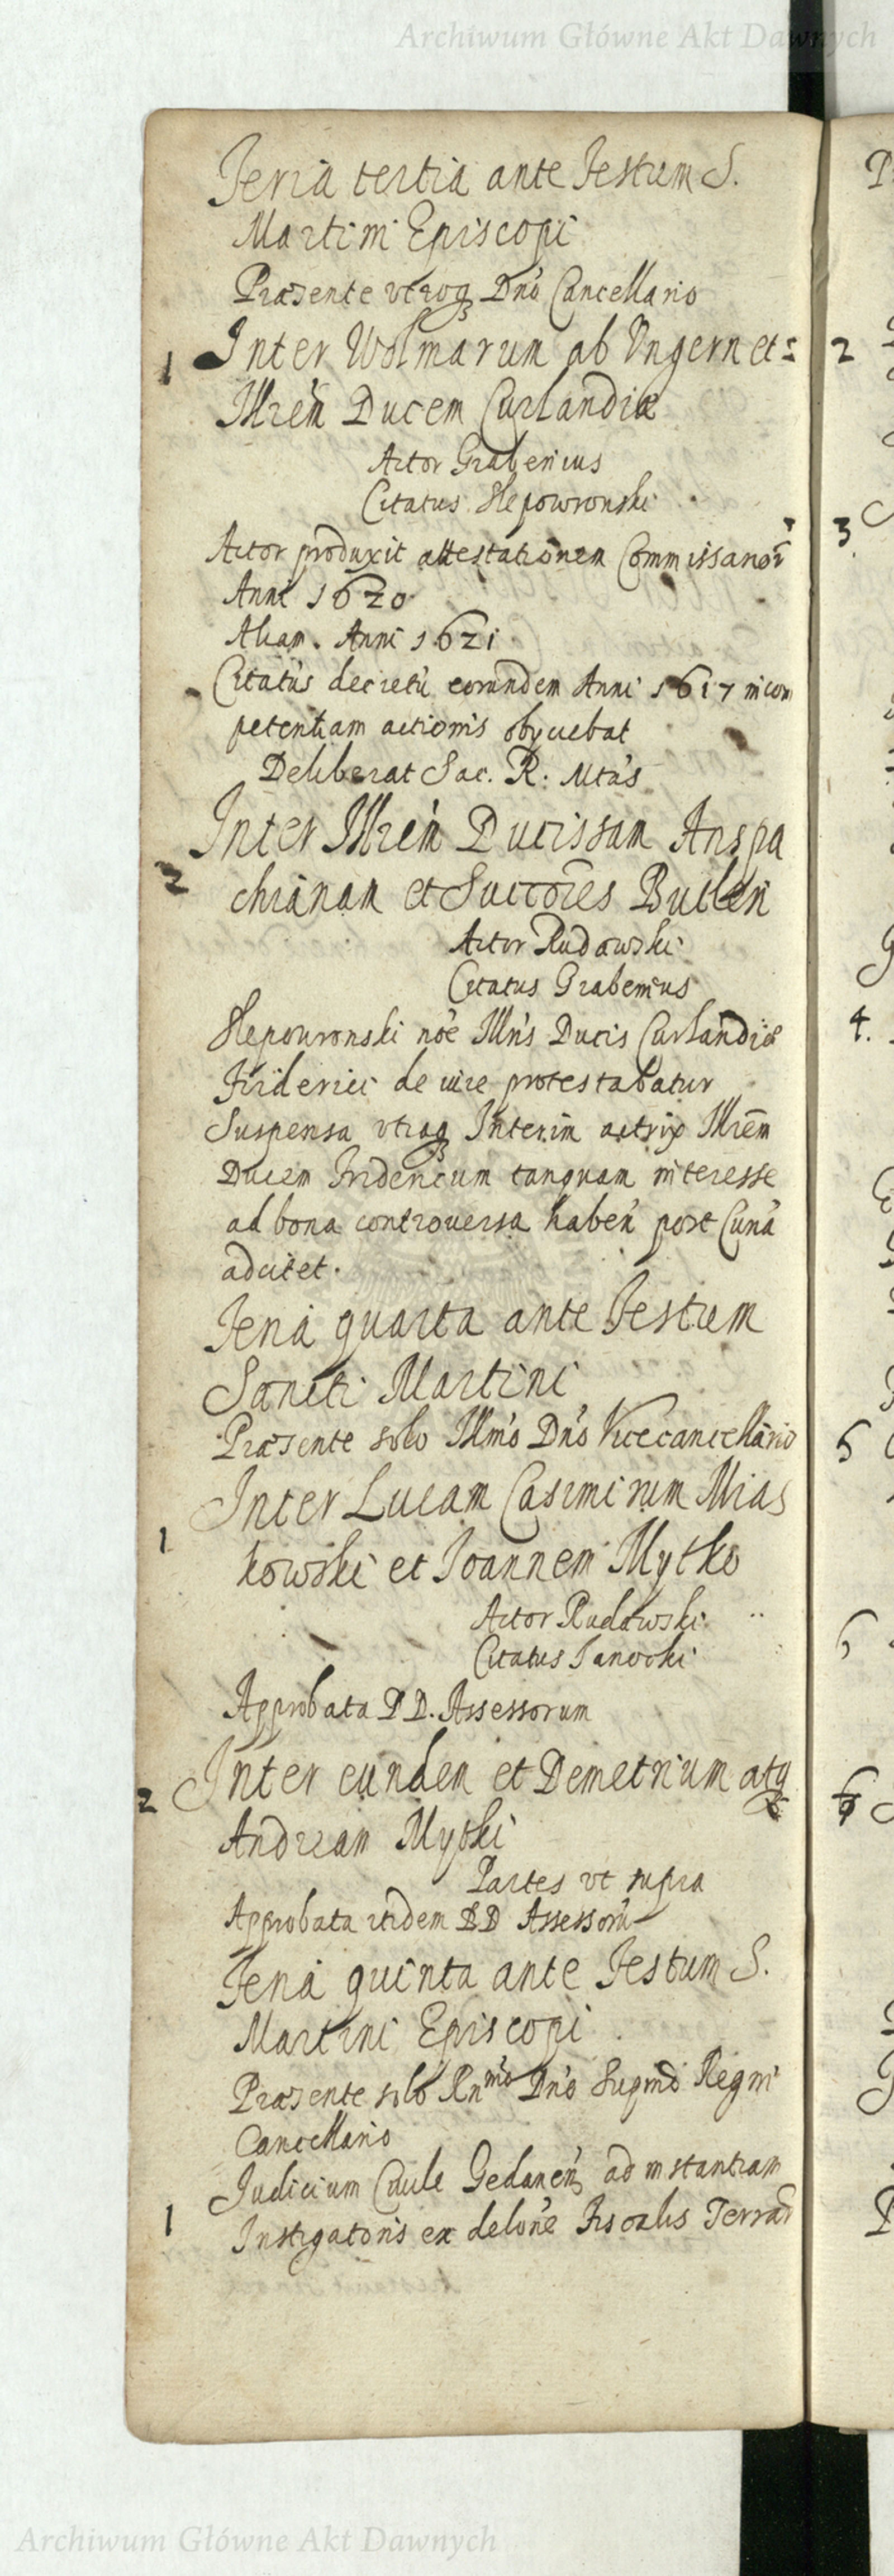 Archiwum Główne Akt Dawnych
Feria tertia ante Festum S.
Martini Episcopi
Præsente vtroq Dnō Cancellario
1 Inter Wolmarum ab Vngern et
Illrem Ducem Curlandiæ
Actor Grabenius
Citatus Slepowronski
Actor produxit attestationem Commissarior
Anni 1620
Aliam. Anni 1621
Citatus decretū eorundem Anni 1617 incom
petentiam actionis obijciebat
Deliberat Sac. R. Mtas
2 Inter Illrem Ducissam Anspa
chianam et Succōres Butleri
Actor Rudawski
Citatus Grabenius
Slepowronski noē Illris Ducis Curlandiæ
Friderici de iure protestabatur
Suspensa vtraq Interim actrix Illrēm
Ducem Fridericum tanquam interesse
ad bona controuersa haben post Curia
adcitet.
Feria quarta ante Festum
Sancti Martini
Præsente solo Illmo Dno Vicecancellario
1 Inter Lucam Casimirum Mias
kowski et Joannem Mytko
Actor Rudawski
Citatus Janocki
Approbata DD. Assessorum
2 Inter eundem et Demetrium atq
Andream Mytki
Partes vt supra
Approbata itidem DD Assessorū
Feria quinta ante Festum S.
Martini Episcopi
Præsente solo Rnmo Dno Supmo Regni
Cancellario
1 Judicium Ciuile Gedanen ad instantiam
Instigatoris ex delone Fiscalis Terrar
2
3
4.
5
6
Archiwum Główne Akt Dawnych